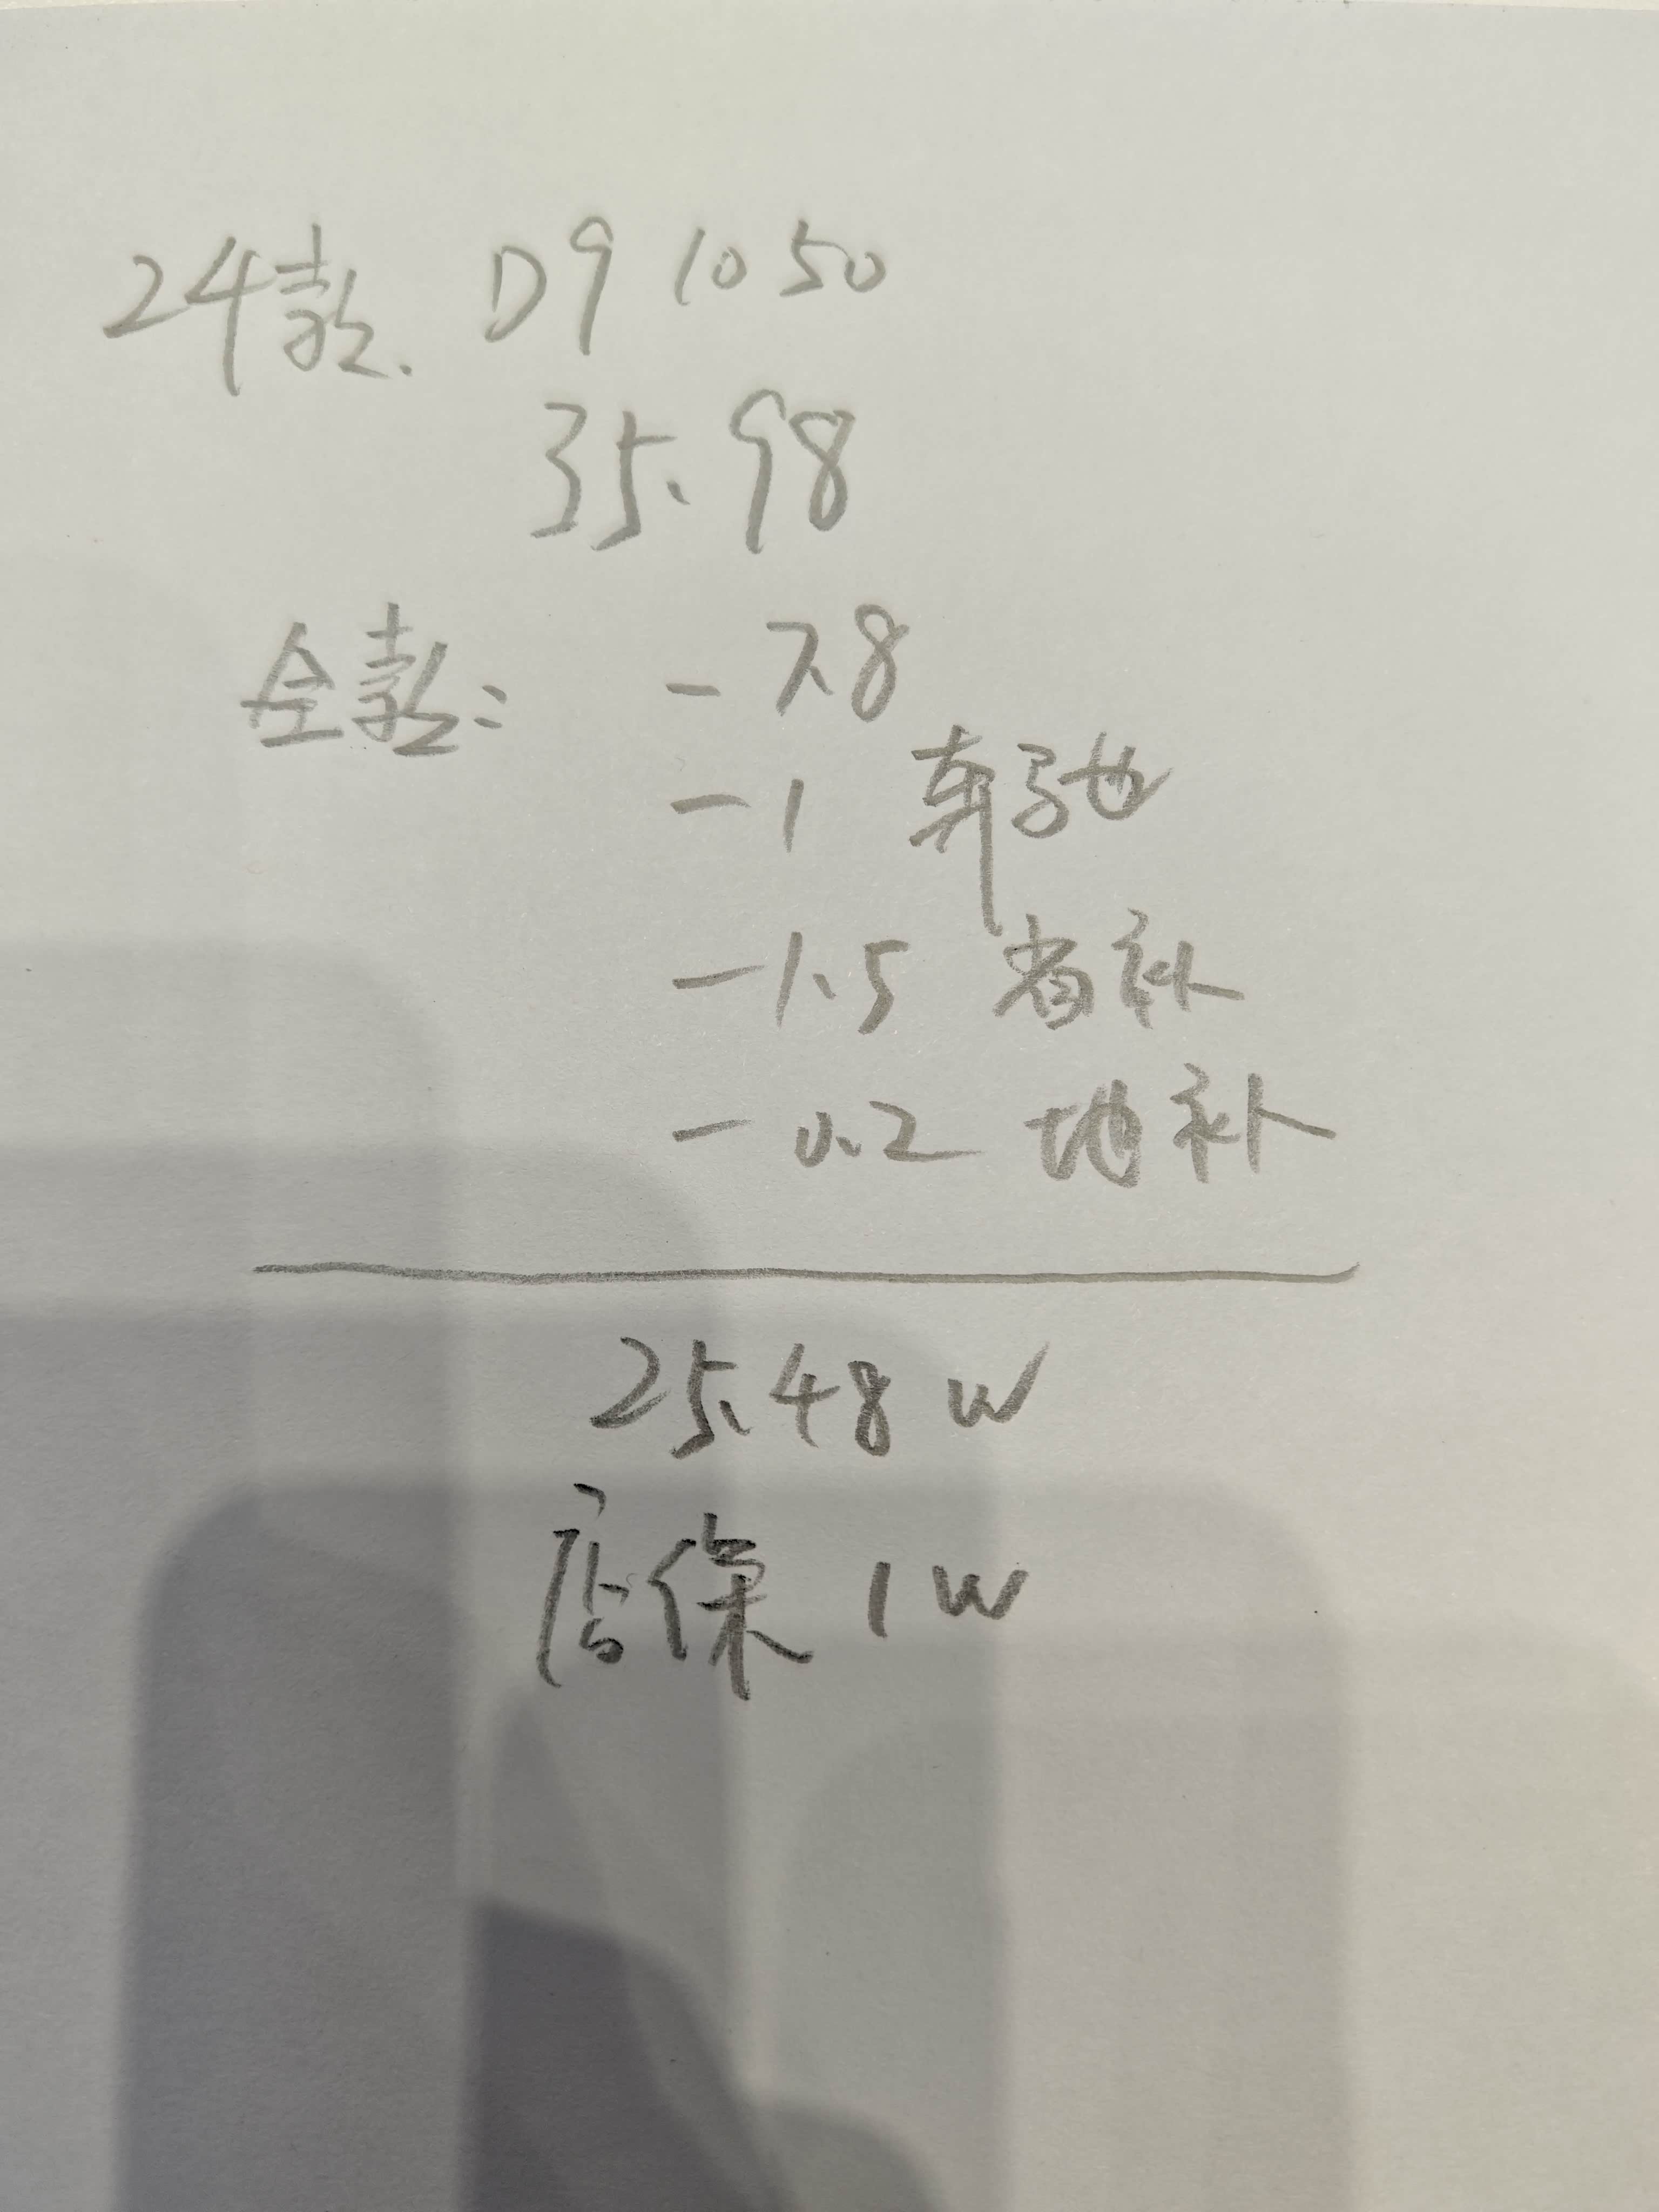 24款. D9 1050
35.98
全款: -7.8
-1 奔驰
-1.5 省补
-0.2 地补
25.48 W
店保 1W